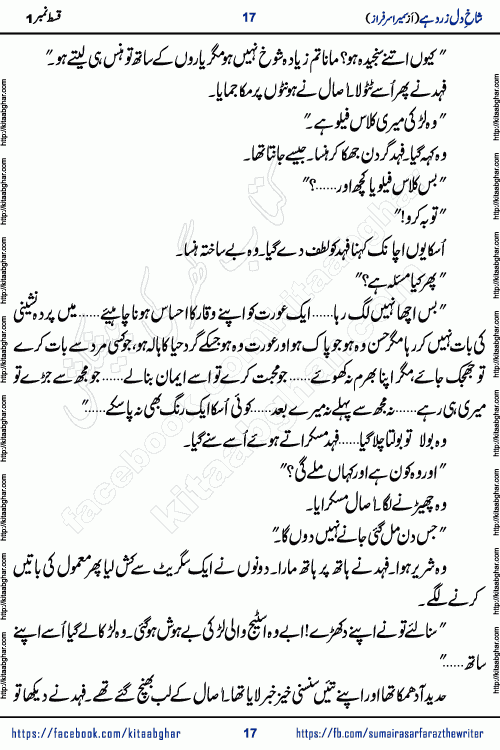 شاخِ دل زرد ہے (از سمیرا سرفراز)
17
قسط نمبر 1
"کیوں اتنے سنجیدہ ہو؟ مانا تم زیادہ شوخ نہیں ہو مگر یاروں کے ساتھ تو ہنس ہی لیتے ہو۔"
فہد نے پھر اُسے ٹٹولا اصال نے ہونٹوں پر مکا جمایا۔
"وہ لڑکی میری کلاس فیلو ہے۔"
وہ کہہ گیا۔ فہد گردن جھکا کر ہنسا۔ جیسے جانتا تھا۔
"بس کلاس فیلو یا کچھ اور......؟"
"توبہ کرو!"
اُسکا یوں اچانک کہنا فہد کو لطف دے گیا۔ وہ بے ساختہ ہنسا۔
"پھر کیا مسئلہ ہے؟"
"بس اچھا نہیں لگ رہا...... ایک عورت کو اپنے وقار کا احساس ہونا چاہیئے...... میں پردہ نشینی
کی بات نہیں کر رہا مگر حسن وہ ہو جو پاک ہو اور عورت وہ ہو جسکے گرد حیا کا ہالہ ہو، جو کسی مرد سے بات کرے
تو جھجک جائے، مگر اپنا بھرم نہ کھوئے...... جو محبت کرے تو اسے ایمان بنالے...... جو مجھ سے جڑے تو
میری ہی رہے...... نہ مجھ سے پہلے نہ میرے بعد...... کوئی اُسکا ایک رنگ بھی نہ پاسکے......"
وہ بولا تو بولتا چلا گیا...... فہد مسکراتے ہوئے اُسے سنے گیا۔
"اور وہ کون ہے اور کہاں ملے گی؟"
وہ چھیڑنے لگا۔ اصال مسکرایا۔
"جس دن مل گئی جانے نہیں دوں گا۔"
وہ شریر ہوا۔ فہد نے ہاتھ پر ہاتھ مارا۔ دونوں نے ایک سگریٹ سے کش لیا پھر معمول کی باتیں
کرنے لگے۔
"سنا لئے تو نے اپنے دکھڑے! ابے وہ اسٹیج والی لڑکی بے ہوش ہوگئی۔ وہ لڑکا لے گیا اُسے اپنے
ساتھ......"
حدید آدھمکا تھا اور اپنے تئیں سنسنی خیز خبر لایا تھا۔ اصال کے لب بھینچ گئے تھے۔ فہد نے دیکھا تو
https://facebook.com/kitaabghar
17
https://fb.com/sumairasarfarazthewriter
http://kitaabghar.com
http://kitaabghar.com
http://kitaabghar.com
http://kitaabghar.com
http://kitaabghar.com
http://kitaabghar.com
http://kitaabghar.com
http://kitaabghar.com